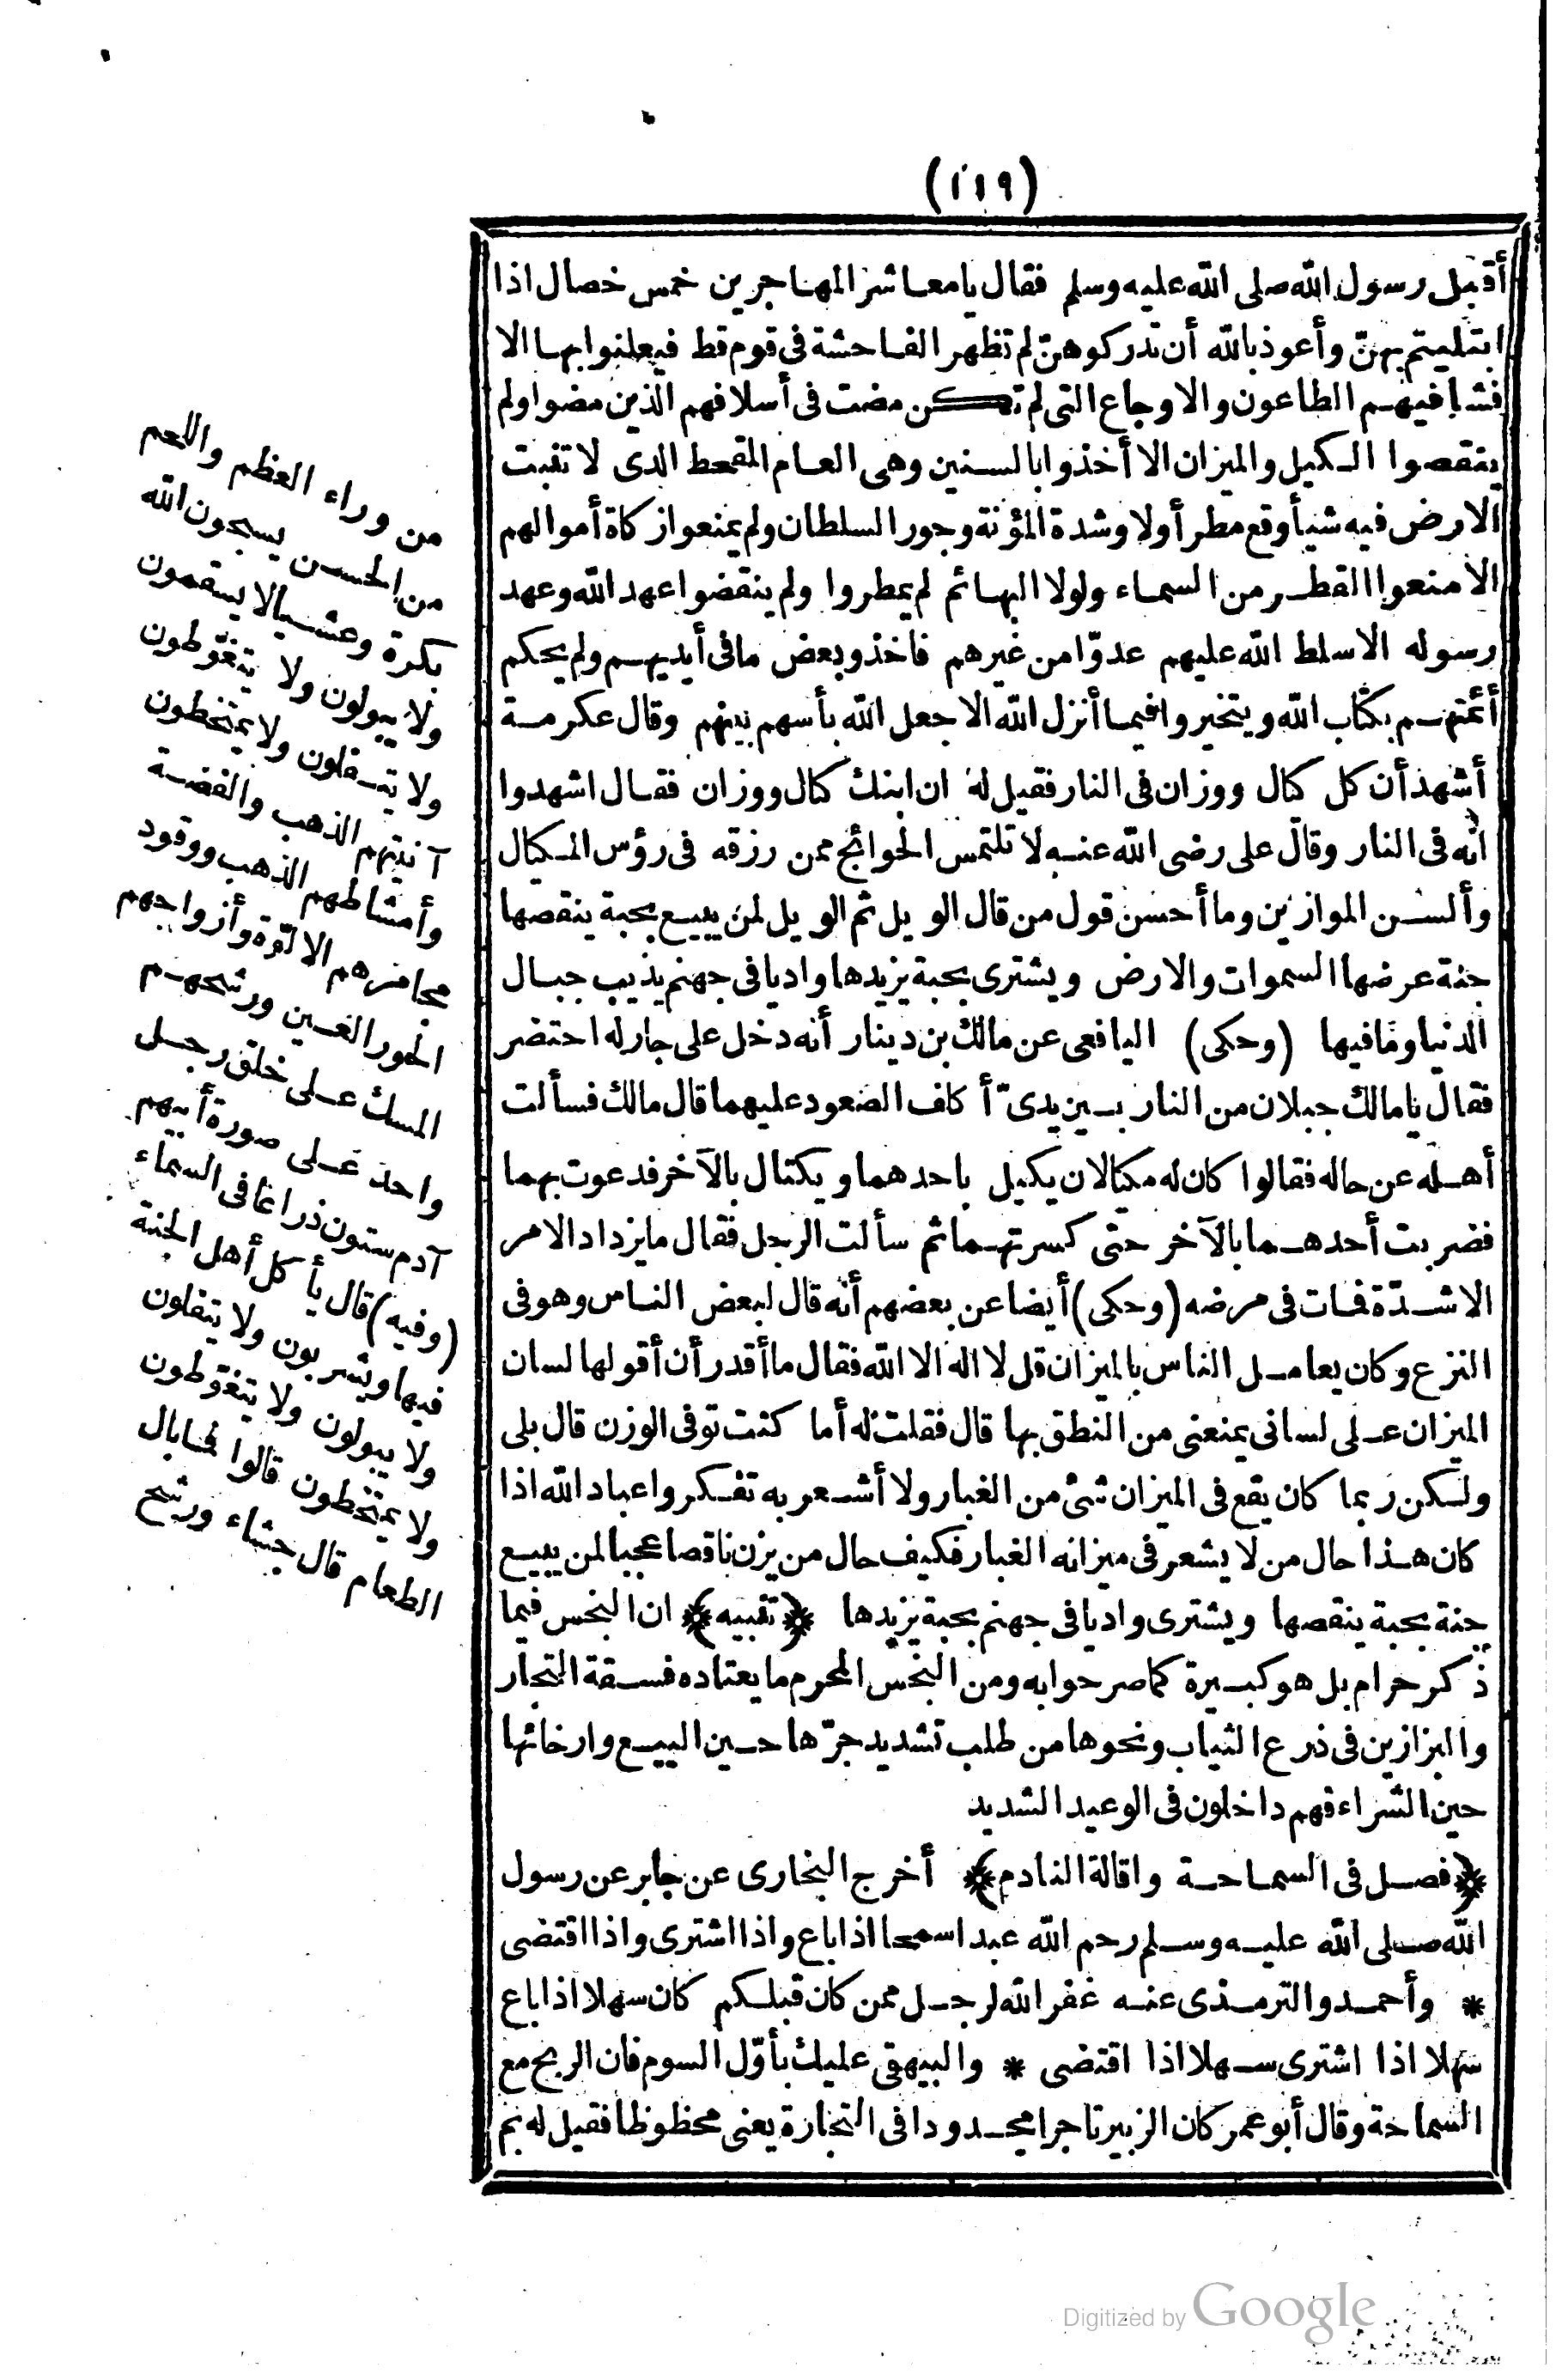 (١١٩)
أقبل رسول الله صلى الله عليه وسلم فقال يا معاشر المهاجرين خمس خصال اذا
ابتليتم بهنّ وأعوذ بالله أن تدركوهنّ لم تظهر الفاحشة فى قوم قط فيعلنوا بها الا
فشا فيهم الطاعون والاوجاع التى لم تكن مضت فى أسلافهم الذين مضوا ولم
ينقصوا الكيل والميزان الا أخذوا بالسنين وهى العام المقحط الذى لا تنبت
الارض فيه شيأ وقع مطر أولا وشدة المؤنة وجور السلطان ولم يمنعوا زكاة أموالهم
الا منعوا القطر من السماء ولولا البهائم لم يمطروا ولم ينقضوا عهد الله وعهد
رسوله الا سلط الله عليهم عدوّا من غيرهم فاخذو بعض ما فى أيديهم ولم يحكم
أئمتهم بكتاب الله ويتخيروا فيما أنزل الله الا جعل الله بأسهم بينهم وقال عكرمة
أشهد أن كل كال ووزان فى النار فقيل له ان ابنك كال ووزان فقال اشهدوا
انه فى النار وقال على رضى الله عنه لا تلتمس الحوائج ممن رزقه فى رؤس المكيال
وألسن الموازين وما أحسن قول من قال الويل ثم الويل لمن يبيع بحبة ينقصها
جنة عرضها السموات والارض ويشترى بحبة يزيدها واديا فى جهنم يذيب جبال
الدنيا وما فيها (وحكى) اليافعى عن مالك بن دينار أنه دخل على جار له احتضر
فقال يا مالك جبلان من النار بين يدىّ أكاف الصعود عليهما قال مالك فسألت
أهله عن حاله فقالوا كان له مكيالان يكيل باحدهما ويكتال بالآخر فدعوت بهما
فضربت أحدهما بالآخر حتى كسرتهما ثم سألت الرجل فقال ما يزداد الامر
الا شدّة فمات فى مرضه (وحكى) أيضا عن بعضهم أنه قال لبعض الناس وهو فى
النزع وكان يعامل الناس بالميزان قل لا اله الا الله فقال ما أقدر أن أقولها لسان
الميزان على لسانى يمنعنى من النطق بها قال فقلت له أما كنت توفى الوزن قال بلى
ولكن ربما كان يقع فى الميزان شئ من الغبار ولا أشعر به تفكروا عباد الله اذا
كان هذا حال من لا يشعر فى ميزانه الغبار فكيف حال من يزن ناقصا عجبا لمن يبيع
جنة بحبة ينقصها ويشترى واديا فى جهنم بحبة يزيدها ﴿تنبيه﴾ ان البخس فيما
ذكر حرام بل هو كبيرة كما صرحوا به ومن البخس المحرم ما يعتاده فسقة التجار
والبزازين فى ذرع الثياب ونحوها من طلب تشديد جرّها حين البيع وارخائها
حين الشراء فهم داخلون فى الوعيد الشديد
﴿فصل فى السماحة واقالة النادم﴾ أخرج البخارى عن جابر عن رسول
الله صلى الله عليه وسلم رحم الله عبدا سمحا اذا باع واذا اشترى واذا اقتضى
* وأحمد والترمذى عنه غفر الله لرجل ممن كان قبلكم كان سهلا اذا باع
سهلا اذا اشترى سهلا اذا اقتضى * والبيهقى عليك بأوّل السوم فان الربح مع
السماحة وقال أبو عمر كان الزبير تاجرا مجدودا فى التجارة يعنى محظوظا فقيل له بم
من وراء العظم واللحم
من الحسن يسبحون الله
بكرة وعشيا لا يسقمون
ولا يبولون ولا يتغوّطون
ولا يتفلون ولا يمتخطون
آنيتهم الذهب والفضة
وأمشاطهم الذهب ووقود
مجامرهم الالوّة وأزواجهم
الحور العين ورشحهم
المسك على خلق رجل
واحد على صورة أبيهم
آدم ستون ذراعا فى السماء
(وفيه) قال يأكل أهل الجنة
فيها ويشربون ولا يتفلون
ولا يبولون ولا يتغوّطون
ولا يمتخطون قالوا فما بال
الطعام قال جشاء ورشح
Digitized by Google